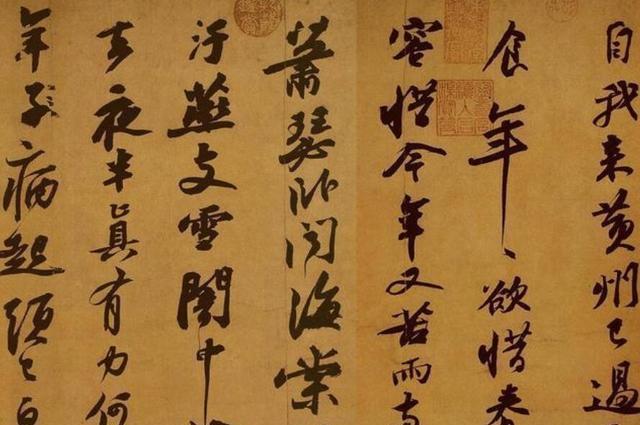 自我来黄州已過
食年、欲惜春
容惜今年又苦雨
蕭瑟卧聞海棠
汙燕支雪闇中
去夜半真有力何
年子病起須已白